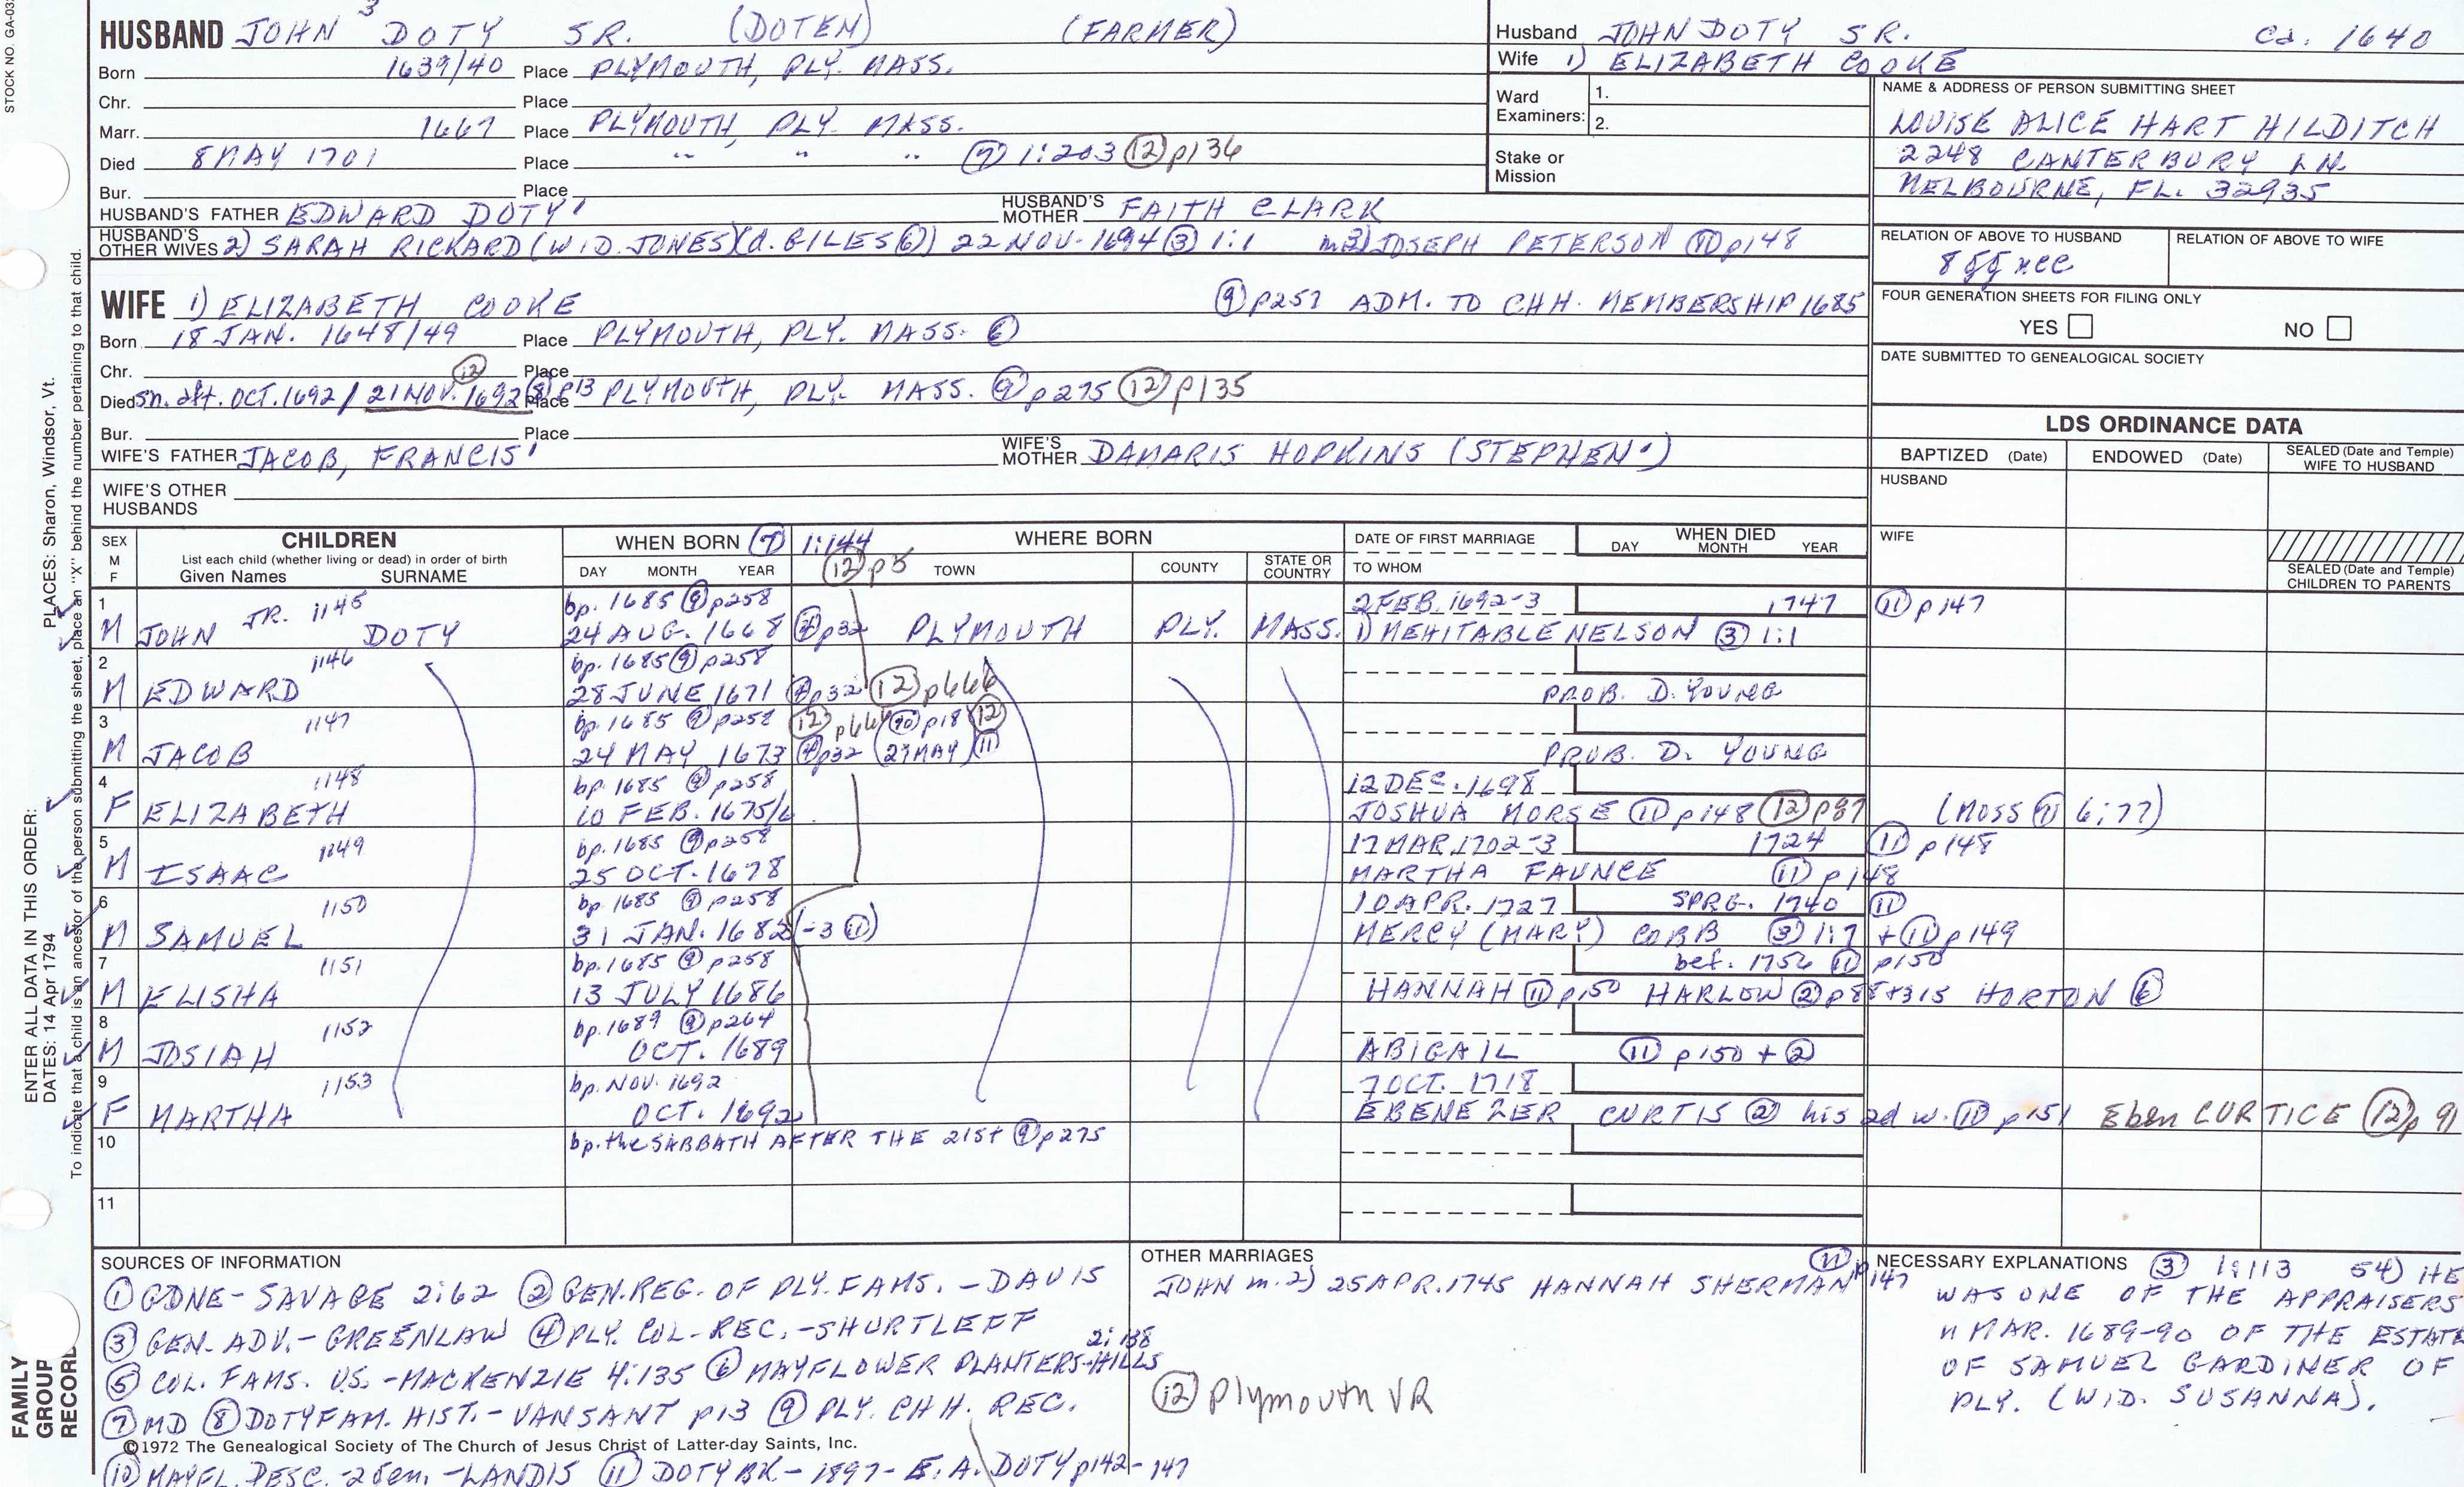 STOCK NO. GA-03
HUSBAND JOHN 3 DOTY SR. (DOTEN) (FARMER)
Born 1639/40 Place PLYMOUTH, PLY. MASS.
Chr. Place
Marr. 1667 Place PLYMOUTH, PLY. MASS.
Died 8 MAY 1701 Place " " " (7) 1:203 (12) p136
Bur. Place
HUSBAND'S FATHER EDWARD DOTY' HUSBAND'S MOTHER FAITH CLARK
HUSBAND'S OTHER WIVES 2) SARAH RICKARD (WID. JONES)(d. GILES (6)) 22 NOV. 1694 (3) 1:1 m2) JOSEPH PETERSON (11) p148
Husband JOHN DOTY SR. Ca. 1640
Wife 1) ELIZABETH COOKE
Ward Examiners: 1.
2.
Stake or Mission
NAME & ADDRESS OF PERSON SUBMITTING SHEET
LOUISE ALICE HART HILDITCH
2248 CANTERBURY LN.
MELBOURNE, FL. 32935
RELATION OF ABOVE TO HUSBAND RELATION OF ABOVE TO WIFE
FOUR GENERATION SHEETS FOR FILING ONLY
YES NO
DATE SUBMITTED TO GENEALOGICAL SOCIETY
WIFE 1) ELIZABETH COOKE (9) p257 ADM. TO CHH. MEMBERSHIP 1685
Born 18 JAN. 1648/49 Place PLYMOUTH, PLY. MASS. (6)
Chr. Place
Died sn. aft. OCT. 1692 / 21 NOV. 1692 (12) (8) p13 Place PLYMOUTH, PLY. MASS. (9) p275 (12) p135
Bur. Place
WIFE'S FATHER JACOB, FRANCIS' WIFE'S MOTHER DAMARIS HOPKINS (STEPHEN')
WIFE'S OTHER HUSBANDS
LDS ORDINANCE DATA
BAPTIZED (Date) ENDOWED (Date) SEALED (Date and Temple) WIFE TO HUSBAND
HUSBAND
WIFE
SEALED (Date and Temple) CHILDREN TO PARENTS
SEX M F
CHILDREN
List each child (whether living or dead) in order of birth
Given Names SURNAME
WHEN BORN (7) 1:144
DAY MONTH YEAR
(12) p5
WHERE BORN
TOWN COUNTY STATE OR COUNTRY
DATE OF FIRST MARRIAGE
TO WHOM
WHEN DIED
DAY MONTH YEAR
1 JR. 1145 bp. 1685 (9) p258 2 FEB. 1692-3 1747 (11) p147
M JOHN DOTY 24 AUG. 1668 (4) p32 PLYMOUTH PLY. MASS. 1) MEHITABLE NELSON (3) 1:1
2 1146 bp. 1685 (9) p258
M EDWARD 28 JUNE 1671 (4) p32 (12) p666 PROB. D. YOUNG
3 1147 bp. 1685 (9) p258 (12) p666 (10) p18 (12)
M JACOB 24 MAY 1673 (4) p32 (27 MAY) (11) PROB. D. YOUNG
4 1148 bp. 1685 (9) p258 12 DEC. 1698
F ELIZABETH 10 FEB. 1675/6 JOSHUA MORSE (11) p148 (12) p87 (MOSS (7) 6:77)
5 1149 bp. 1685 (9) p258 17 MAR. 1702-3 1724 (11) p148
M ISAAC 25 OCT. 1678 MARTHA FAUNCE (11) p148
6 1150 bp 1685 (9) p258 10 APR. 1727 SPRG. 1740 (11)
M SAMUEL 31 JAN. 1682 (-3 (11)) MERCY (MARY) COBB (3) 1:7 + (11) p149
7 1151 bp. 1685 (9) p258 bef. 1756 (11) p150
M ELISHA 13 JULY 1686 HANNAH (11) p150 HARLOW (2) p88+315 HORTON (6)
8 1152 bp. 1689 (9) p264
M JOSIAH OCT. 1689 ABIGAIL (11) p150 + (2)
9 1153 bp. NOV. 1692 7 OCT. 1718
F MARTHA OCT. 1692 EBENEZER CURTIS (2) his 2d w. (11) p151 Eben CURTICE (12) p 91
10 bp. the SABBATH AFTER THE 21st (9) p275
11
SOURCES OF INFORMATION
(1) GDNE - SAVAGE 2:62 (2) GEN. REG. OF PLY. FAMS. - DAVIS
(3) GEN. ADV. - GREENLAW (4) PLY. COL. REC. - SHURTLEFF
(5) COL. FAMS. U.S. - MACKENZIE 4:135 (6) MAYFLOWER PLANTERS - HILLS 2:138
(7) MD (8) DOTY FAM. HIST. - VANSANT p13 (9) PLY. CHH. REC.
©1972 The Genealogical Society of The Church of Jesus Christ of Latter-day Saints, Inc.
(10) MAYFL. DESC. - 2 Gen. - LANDIS (11) DOTY BK - 1897 - E. A. DOTY p142-147
OTHER MARRIAGES
JOHN m. 2) 25 APR. 1745 HANNAH SHERMAN (11) p147
(12) Plymouth VR
NECESSARY EXPLANATIONS (3) 1:113 54) HE
WAS ONE OF THE APPRAISERS
n MAR. 1689-90 OF THE ESTATE
OF SAMUEL GARDINER OF
PLY. (WID. SUSANNA).
PLACES: Sharon, Windsor, Vt.
ENTER ALL DATA IN THIS ORDER:
DATES: 14 Apr 1794
To indicate that a child is an ancestor of the person submitting the sheet, place an "X" behind the number pertaining to that child.
FAMILY GROUP RECORD